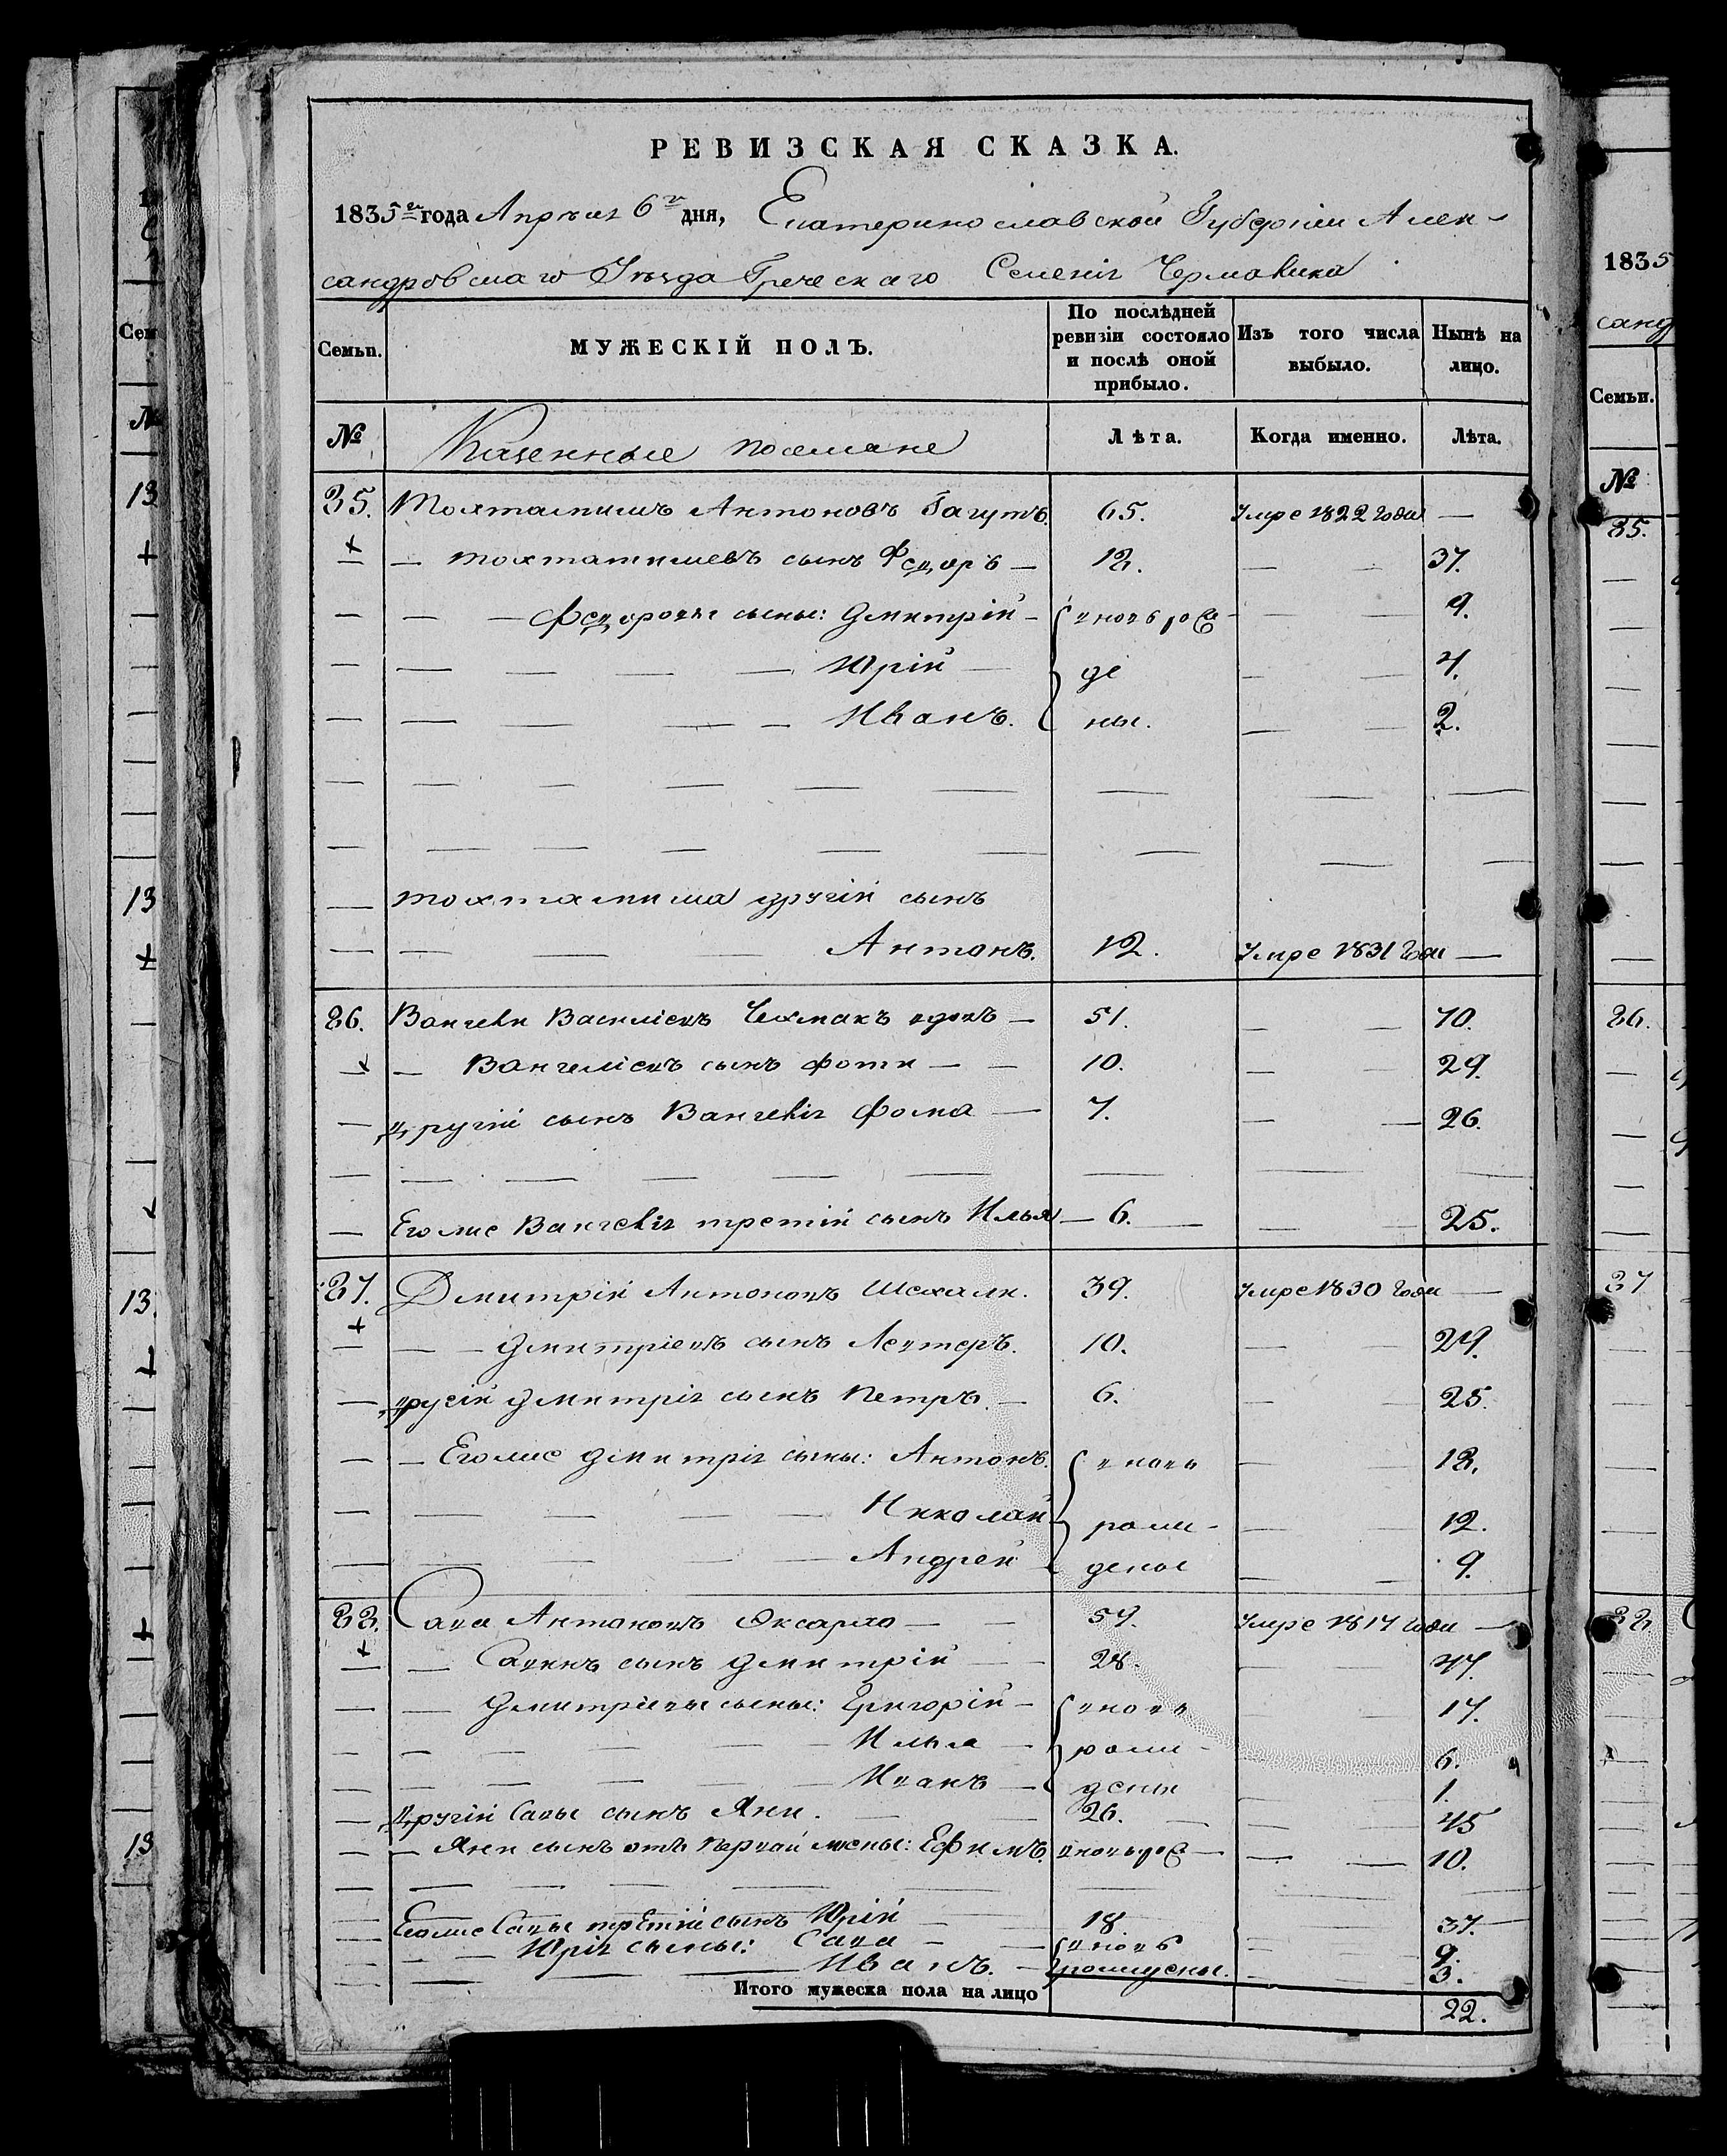 РЕВИЗСКАЯ СКАЗКА.
1835го года Апрѣля 6го дня, Екатеринославской Губерніи Алек-
сандровскаго Уѣзда Греческаго Селенія Чермалика
Семьи. МУЖЕСКІЙ ПОЛЪ. По послѣдней ревизіи состояло и послѣ оной прибыло. Изъ того числа выбыло. Нынѣ на лицо.
№ Казенные поселяне Лѣта. Когда именно. Лѣта.
35. Тохтамишъ Антоновъ 65. Умре 1822 года —
— тохтамишевъ сынъ Федоръ — 12. — — 37.
— — — Федоровы сыны: Дмитрій — — — 9.
— — — — — Юрій — де — — 4.
— — — — — Иванъ. ны. — — 2.
— тохтамиша другій сынъ
— — — — Антонъ. 12. Умре 1831 года —
86. Вангели Василіевъ вдовъ — 51. — — 70.
— — Вангеліевъ сынъ Фоти — — 10. — — 29.
— другій сынъ Вангелія Фома — 7. — — 26.
— Егоже Вангелія третій сынъ Илья — 6. — — 25.
87. Дмитрій Антоновъ 39. Умре 1830 года —
— — — Дмитріевъ сынъ Лефтеръ. 10. — — 29.
— другій Дмитрія сынъ Петръ. — 6. — — 25.
— — Егоже Дмитрія сыны: Антонъ. вновь — — 18.
— — — — — Николай рож- — — 12.
— — — — — Андрей дены — — 9.
88. Сава Антоновъ — — 59. Умре 1817 года —
— — Савинъ сынъ Дмитрій — — 28. — — 47.
— — Дмитріевы сыны: Григорій — вновь — — 17.
— — — — — — Илья — рож- — — 6.
— — — — — — Иванъ — дены — — 1.
— Другій Савы сынъ Яни. — — 26. — — 45
— — Яни сынъ отъ первой жены: Ефимъ. — — 10.
— Егоже Савы третій сынъ Юрій — 18. — — 37.
— — — Юрія сыны: Сава — — вновь — — 9.
— — — — Иванъ. — рождены. — — 3.
Итого мужеска пола на лицо 22.